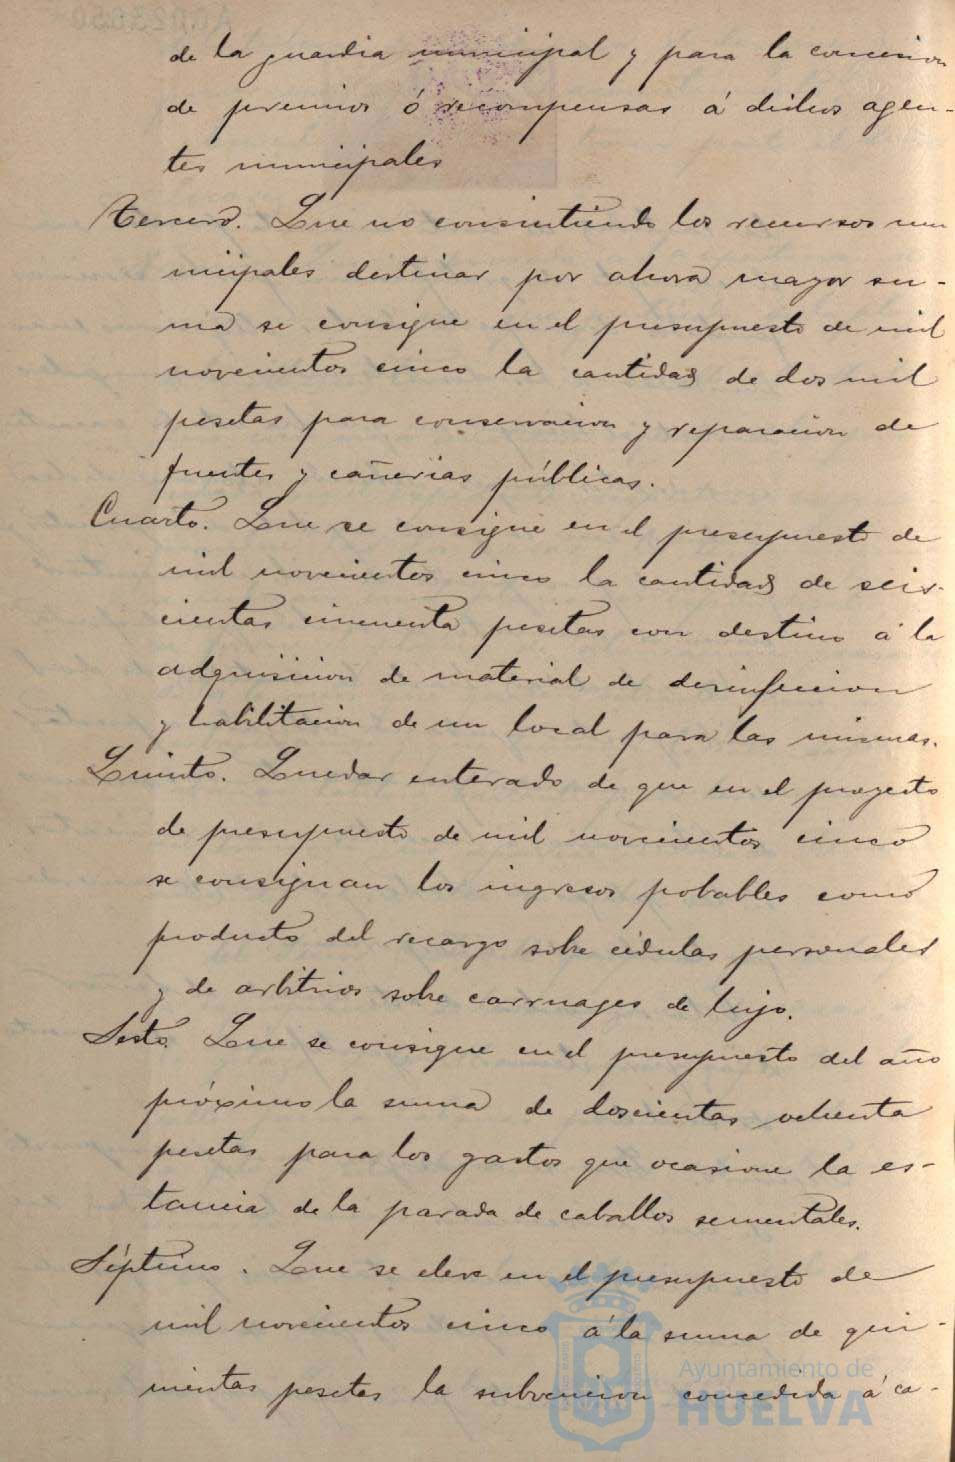 de la guardia municipal y para la concesion
de premios ó recompensas á dichos agen-
tes municipales
Tercero. Que no consintiendo los recursos mu
nicipales destinar por ahora mayor su-
ma se consigne en el presupuesto de mil
novecientos cinco la cantidad de dos mil
pesetas para conservacion y reparacion de
fuentes y cañerias públicas.
Cuarto. Que se consigne en el presupuesto de
mil novecientos cinco la cantidad de seis-
cientas cincuenta pesetas con destino á la
adquisicion de material de desinfeccion
y habilitacion de un local para las mismas.
Quinto. Quedar enterado de que en el proyecto
de presupuesto de mil novecientos cinco
se consignan los ingresos probables como
producto del recargo sobre cédulas personales
y de arbitrios sobre carruages de lujo.
Sesto. Que se consigne en el presupuesto del año
próximo la suma de doscientas ochenta
pesetas para los gastos que ocasione la es-
tancia de la parada de caballos sementales.
Séptimo. Que se eleve en el presupuesto de
mil novecientos cinco á la suma de qui-
nientas pesetas la subvencion concedida á ca-
Ayuntamiento de
HUELVA